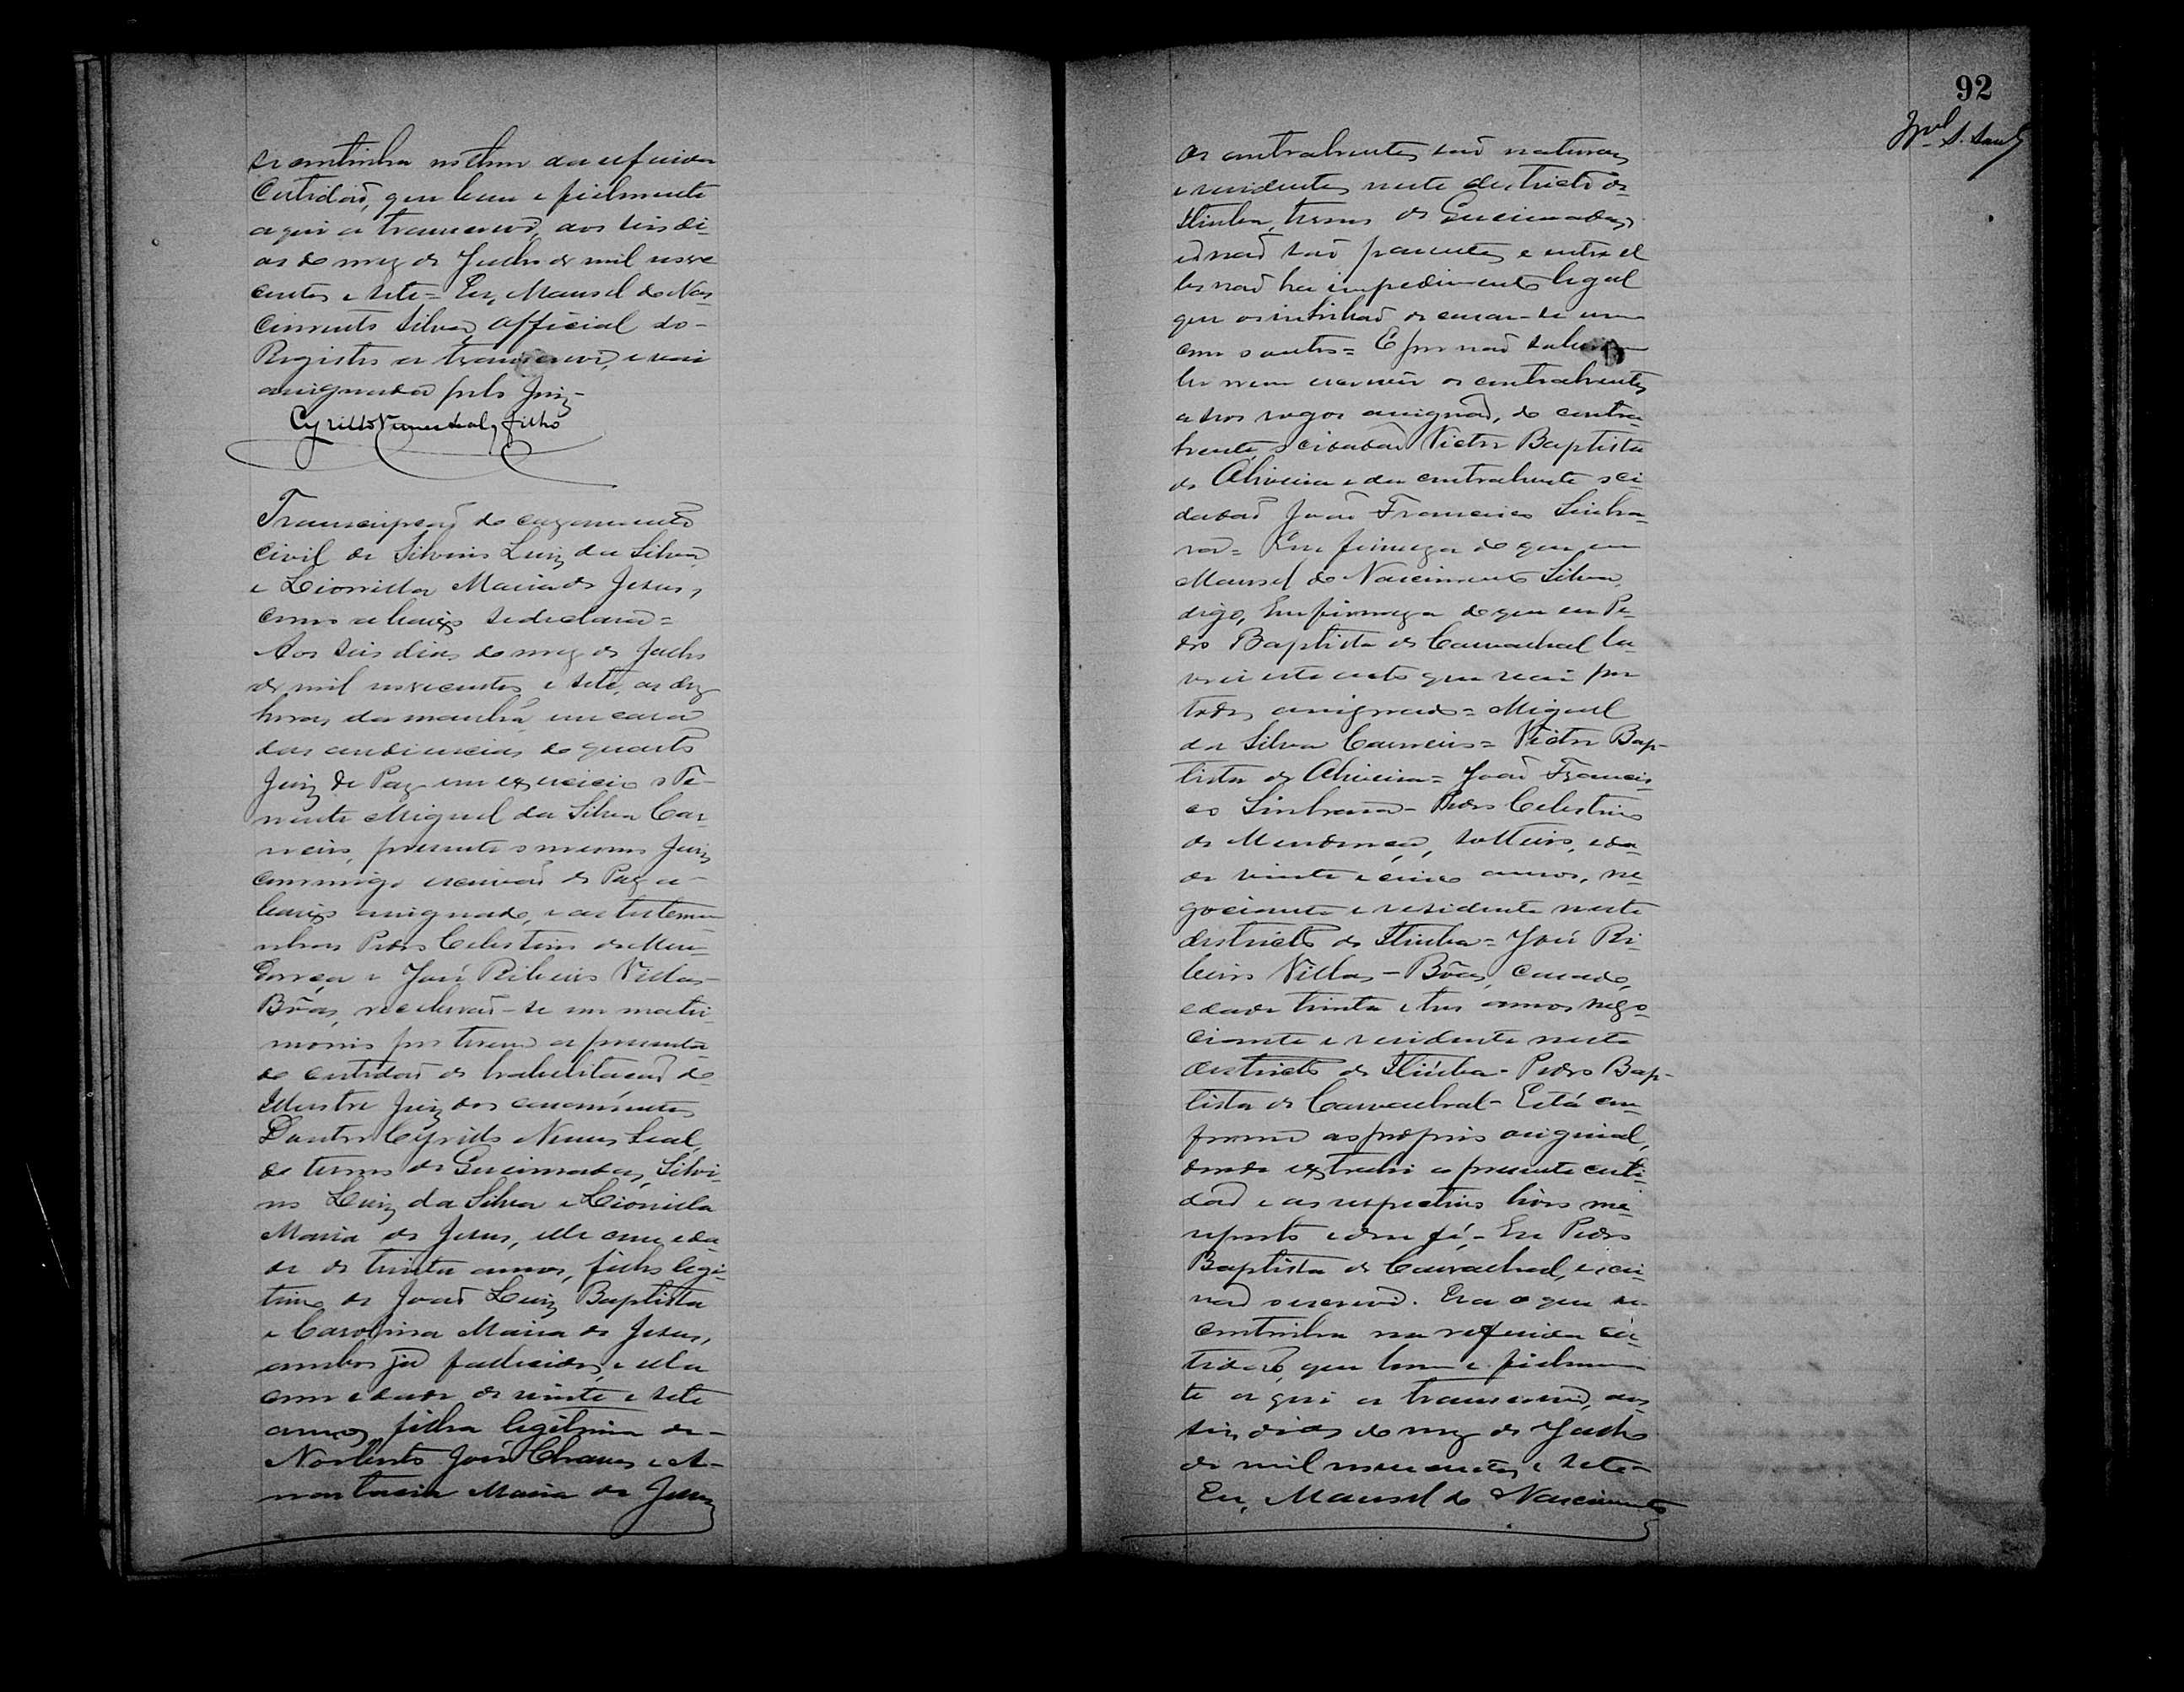 se continha no theor da referida
Certidaõ, que bem e fielmente
aqui a transcrevi, aos seis di-
as do mez de Julho de mil nove
centos e sete= Eu, Manoel do Nas-
cimento Silva, official do-
Registro a transcrevi, e vai
assignada pelo Juiz-
Cyrillo Nunes Leal, filho
Transcripçaõ do cazamento
Civil de Silvino Luiz da Silva,
e Leonilla Maria de Jesus,
como abaixo se declara=
Aos seis dias do mez de Julho
de mil novecentos e sete, as dez
horas da manhã em casa
das audiencias do quarto
Juiz de Paz em exercicio o Te-
nente Miguel da Silva Car-
neiro, presente o mesmo Juiz
commigo escrivaõ de Paz a-
baixo assignado, e as testemu-
nhas Pedro Celestino de Men-
donça e José Ribeiro Villas-
Bôas, receberaõ-se em matri-
monio por terem apresenta-
do certidaõ de habilitacaõ do
Illustre Juiz dos casamentos
Doutor Cyrillo Nunes Leal,
do termo de Queimadas, Silvi-
no Luiz da Silva e Leonilla
Maria de Jesus, elle com eda-
de de trinta annos, filho legi-
timo de Joaõ Luiz Baptista
e Carolina Maria de Jesus,
ambos já fallecidos, e ella
com edade de vinte e sete
annos, filha legitima de-
Norberto José Chaves e A-
nastacia Maria de Jesus
92
Os contrahentes saõ naturaes
e residentes neste districto de
Itiuba, termo de Queimadas,
e naõ saõ parentes e entre el
les naõ ha impedimento legal
que os inhibaõ de casar-se um
com o outro= E por naõ saberem
ler nem escrever os contrahentes
a seos rogos assignaõ, do contra-
hente, o cidadaõ Victor Baptista
de Oliveira e da contrahente o ci-
dadaõ Joaõ Francisco
Em firmeza do que eu
Manoel do Nascimento Silva,
digo, Em firmeza do que eu Pe-
dro Baptista de Carvalhal la-
vrei este acto que vai por
todos assignado= Miguel
da Silva Carneiro= Victor Bap-
tista de Oliveira= Joaõ Francis-
co Pedro Celestino
de Mendonça, solteiro, eda-
de vinte e cinco annos, ne-
gociante e residente neste
districto de Itiuba= José Ri-
beiro Villas-Bôas, casado,
edade trinta e tres annos nego-
ciante e residente neste
districto de Itiuba- Pedro Bap-
tista de Carvalhal- Está con-
forme ao proprio original,
donde extrahi a presente certi-
daõ e ao respectivo livro me
reporto e dou fé,- Eu Pedro
Baptista de Carvalhal, escri-
vaõ o escrevi. Era o que se
continha na referida cer-
tidaõ, que bem e fielmen-
te aqui a transcrevi, aos
seis dias do mez de Julho
de mil novecentos e sete-
Eu, Manoel do Nascimento